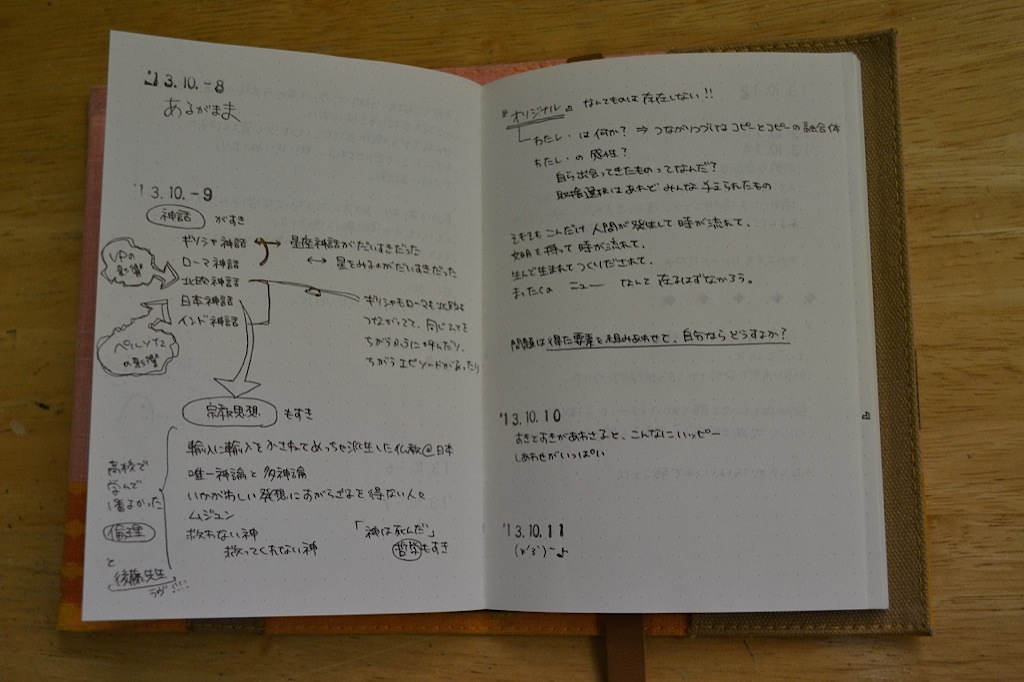 '13.10.-8
あるがまま
'13.10.-9
神話 がすき
ギリシャ神話
ローマ神話
北欧神話
日本神話
インド神話
VPの影響
ペルソナ2の影響
→ 星座神話がだいすきだった
↔ 星をみるのがだいすきだった
ギリシャもローマも北欧も
つながってて、同じひとを
ちがうふうに呼んだり、
ちがうエピソードがあったり
宗教思想 もすき
輸入に輸入をかさねてめっちゃ派生した仏教@日本
唯一神論と多神論
いかがわしい発想にすがらざるを得ない人々
ムジュン
救わない神
救ってくれない神
「神は死んだ」
哲学もすき
高校で
学んで
1番よかった
倫理
と
後藤先生
ラヴ!!!!
『オリジナル』なんてものは存在しない!!
わたし・は何か? ⇒ つながりつづけるコピーとコピーの融合体
わたし・の感性?
自ら出会ってきたものってなんだ?
取捨選択はあれどみんな与えられたもの
そもそもこんだけ人間が発生して時が流れて、
文明を持って時が流れて、
生んで生まれてつくりだされて、
まったくの ニュー なんて在るはずなかろう。
問題は得た要素を組みあわせて、自分ならどうするか?
'13.10.10
すきとすきがあわさると、こんなにハッピー
しあわせがいっぱい
'13.10.11